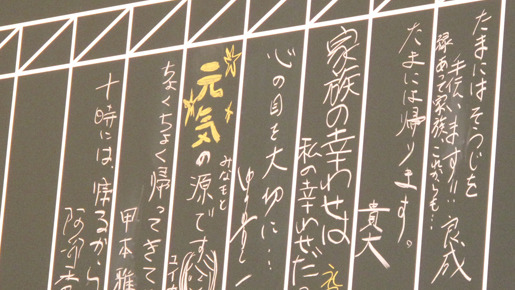 たまにはそうじを
手伝います!!
縁あって家族。これからも… 良成
たまには帰ります。
貴大
家族の幸わせは
私の幸わせだ
心の目を大切に…
元気の源です
みなもと
ちょくちょく帰ってきて
十時には、帰るから
甲本 雅